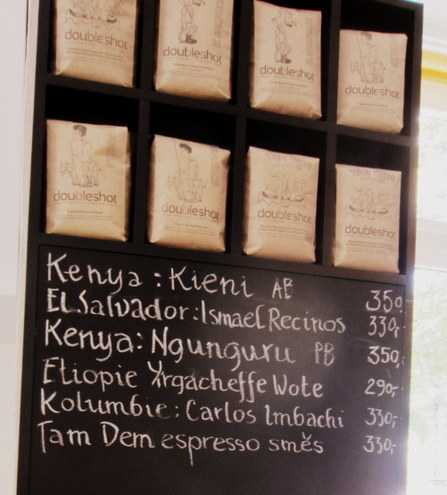 doubleshot doubleshot doubleshot doubleshot
doubleshot doubleshot doubleshot doubleshot
Kenya : Kieni AB 350,-
El Salvador : Ismael Recinos 330,-
Kenya : Ngunguru PB 350,-
Etiopie Yrgacheffe Wote 290,-
Kolumbie : Carlos Imbachi 330,-
Tam Dem espresso směs 330,-